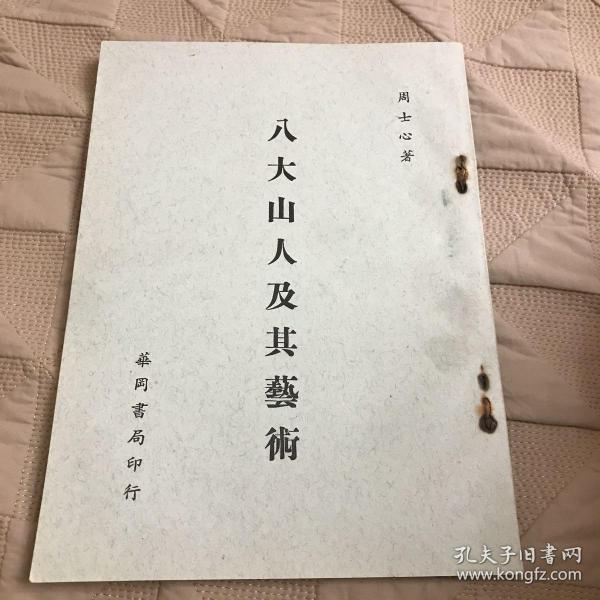 周士心著
八大山人及其藝術
華岡書局印行
孔夫子旧書网
www.kongfz.com